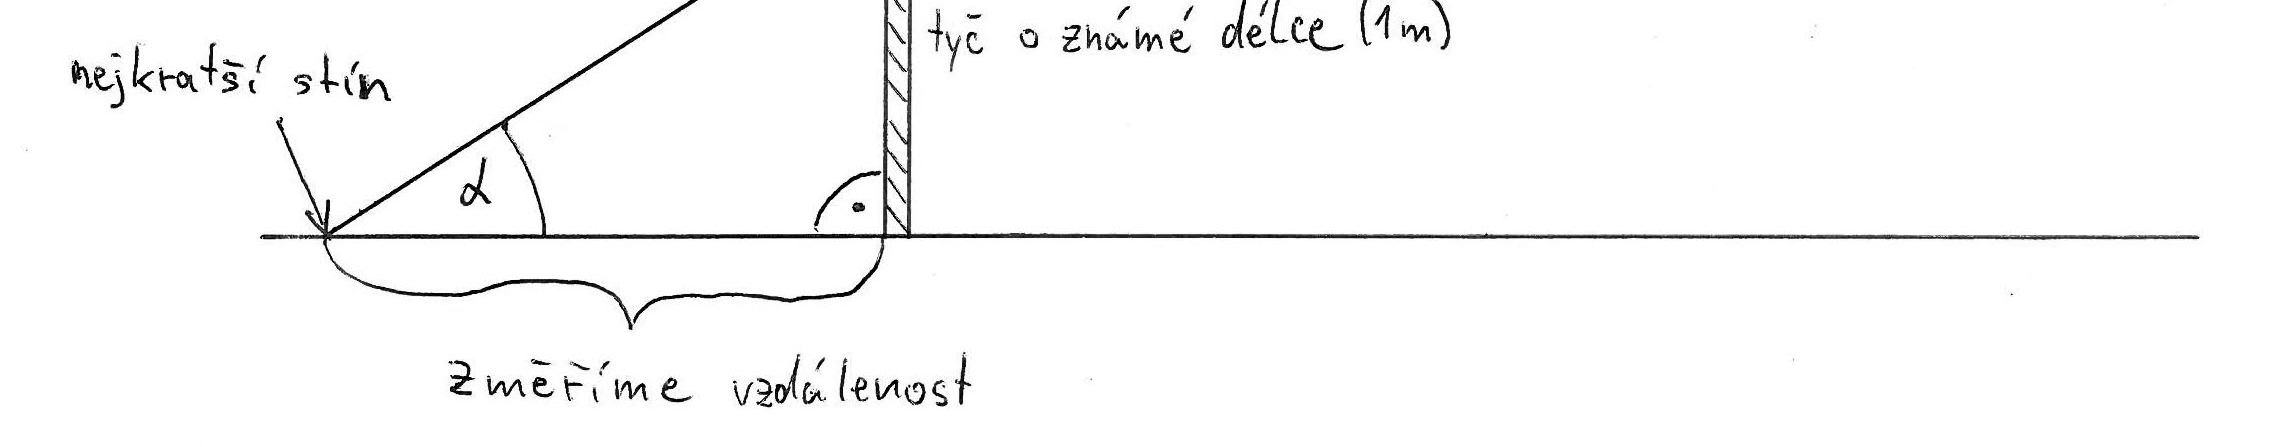 tyč o známé délce (1m)
nejkratší stín
α
změříme vzdálenost